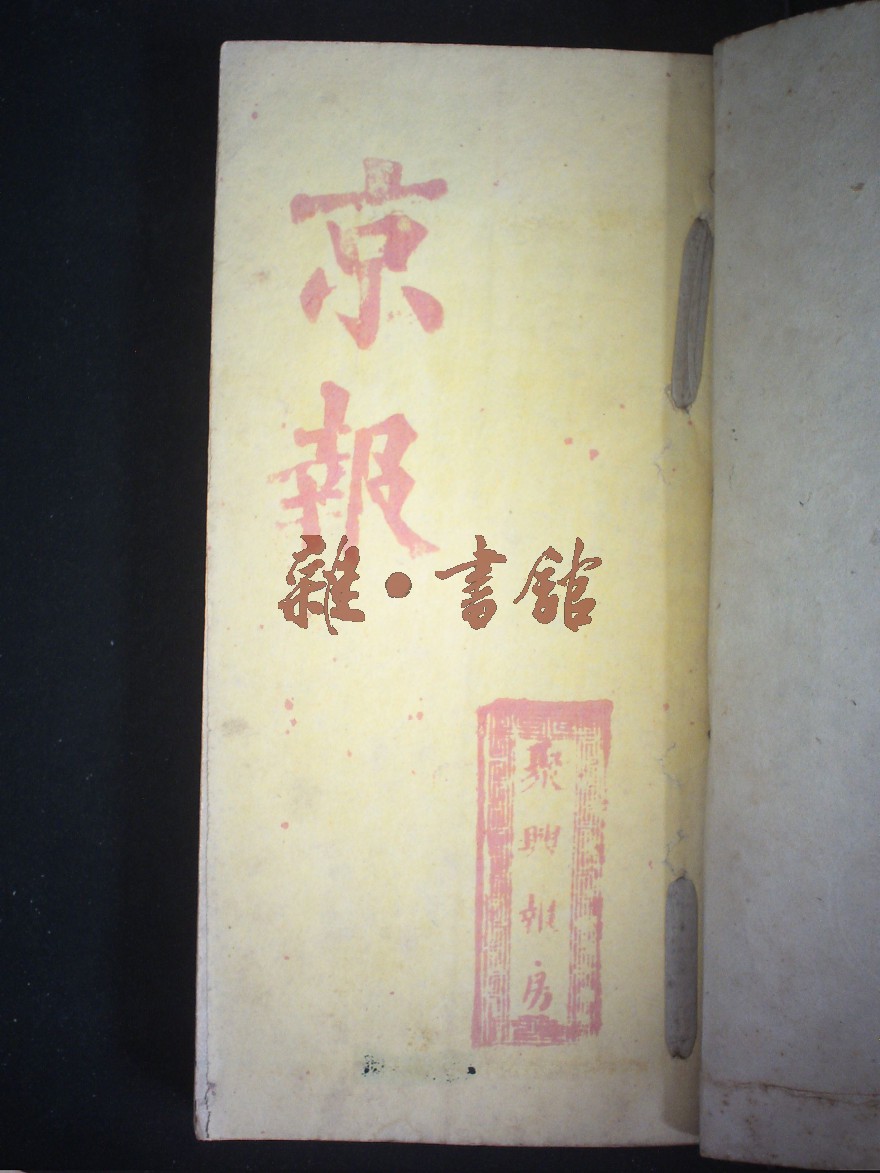 京報
雜·書館
聚興報房